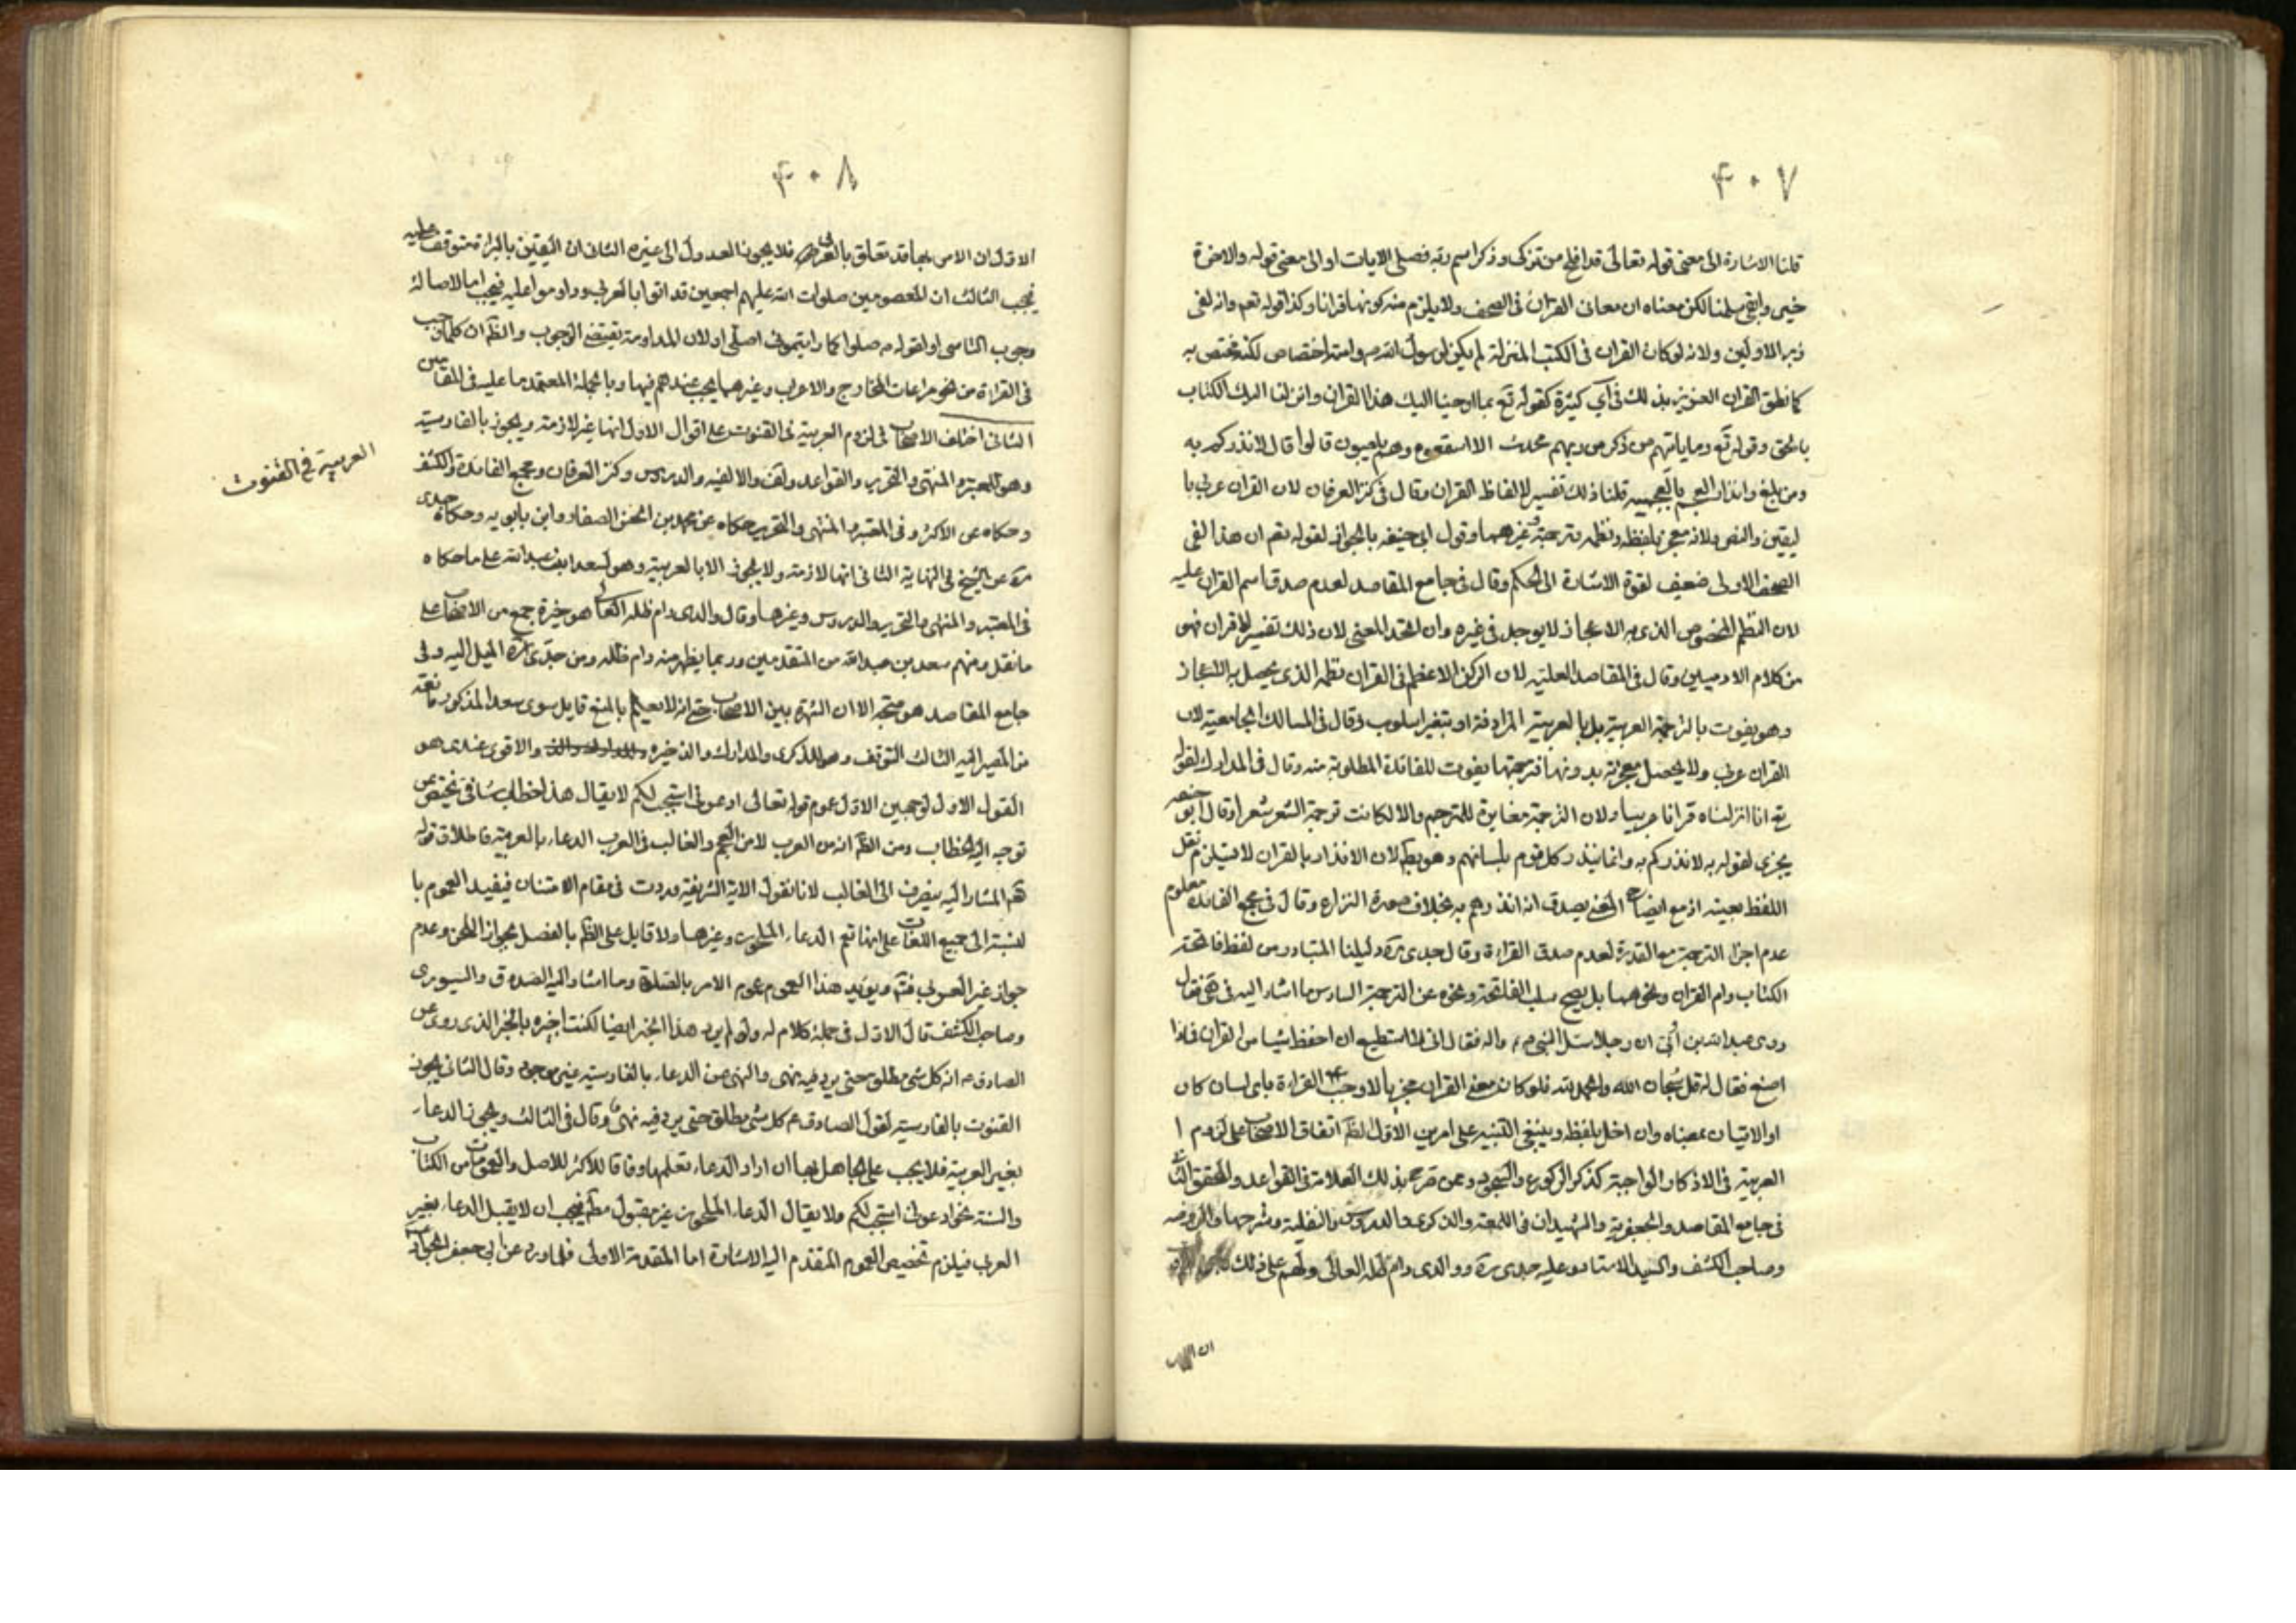 ٤٠٧
قلنا الاشارة الى معنى قوله تعالى قد افلح من تزكى وذكر اسم ربه فصلى الايات او الى معنى قوله والاخرة
خير وابقى سلمنا لكن معناه ان معانى القران فى الصحف ولا يلزم منه كونها قرانا وكذا قوله تعم وانه لفى
زبر الاولين ولانه لو كان القران فى الكتب المنزلة لم يكن لرسول الله ص وامته اختصاص لكنه مختص به
كما نطق القران العزيز بذلك فى آي كثيرة كقوله تع بما اوحينا اليك هذا القران وانزلنا اليك الكتاب
بالحق وقوله تع وما ياتيهم من ذكر من ربهم محدث الا استمعوه وهم يلعبون قالوا قال لانذركم به
ومن بلغ وانذار العجم بالعجمية قلنا ذلك تفسير لالفاظ القران وقال فى كنز العرفان لان القران عربى با
ليقين والنص ولانه معجز بلفظه ونظمه وترجمته غيرهما وقول ابى حنيفه بالجواز لقوله تعم ان هذا لفى
الصحف الاولى ضعيف لقوة الاشارة الى الحكم وقال فى جامع المقاصد لعدم صدق اسم القران عليه
لان النظم المخصوص الذى به الاعجاز لا يوجد فى غيره وان اتحد المعنى لان ذلك تفسير للقران فهو
من كلام الادميين وقال فى المقاصد العلية لان الركن الاعظم فى القران نظمه الذى يحصل به الاعجاز
وهو يفوت بالترجمة العربية بل بالعربية المرادفة او بتغير اسلوب وقال فى المسالك الجامعية لان
القران عربى ولا يحصل معجزته بدونها فترجمتها يفوت للفائدة المطلوبة منه وقال فى المدارك لقوله
تع انا انزلناه قرانا عربيا ولان الترجمة مغايرة للمترجم والا لكانت ترجمة الشعر شعرا وقال ابو حنيفه
يجزى لقوله به لانذركم به وانما ينذر كل قوم بلسانهم وهو بط لان الانذار بالقران لا يستلزم نقل
اللفظ بعينه اذ مع ايضاح المعنى يصدق انه انذرهم به بخلاف صورة النزاع وقال فى مجمع الفائدة معلوم
عدم اجزاء الترجمة مع القدرة لعدم صدق القراءة وقال جدى ره دليلنا المتبادر من لفظ فاتحة
الكتاب وام القران ونحوهما بل يصح سلب الفاتحة ونحوه عن الترجمة السادس ما اشار اليه فى فقال
روى عبد الله بن ابى ان رجلا سئل النبى ص واله فقال انى لا استطيع ان احفظ شيئا من القران فماذا
اصنع فقال له قل سبحان الله والحمد لله فلو كان معنى القران مجزيا لاوجب القراءة باى لسان كان
او الاتيان بمعناه وان اخل بلفظه وينبغى التنبيه على امرين الاول لظ اتفاق الاصحاب على لزوم ا
العربية فى الاذكار الواجبة كذكر الركوع والسجود وممن صرح بذلك العلامة فى القواعد والمحقق الثانى
فى جامع المقاصد والجعفرية والشهيدان فى اللمعة والذكرى والدروس والنفلية وشرحها والروضه
وصاحب الكشف والسيد الاستاد وعليه جدى ره ووالدى دام ظله العالى ولهم على ذلك
٤٠٨
الاول ان الامر بها قد تعلق بالعربى فلا يجوز العدول الى غيره الثانى ان اليقين بالبراءة متوقف عليه
فيجب الثالث ان المعصومين صلوات الله عليهم اجمعين قد اتوا بالعربى وداوموا عليه فيجب اما لاصالة
وجوب التاسى او لقوله ص صلوا كما رايتمونى اصلى او لان المداومة يقتضى الوجوب والظ ان كلما وجب
فى القراءة من نحو مراعات المخارج والاعراب وغيرهما يجب عندهم فيها وبالجملة المعتمد ما عليه فى المقامين
الثانى اختلف الاصحاب فى لزوم العربية فى القنوت على اقوال الاول انها غير لازمة ويجوز بالفارسية
وهو للمعتبر والمنتهى والتحرير والقواعد ولف والالفيه والدروس وكنز العرفان ومجمع الفائدة والكشف
وحكاه عن الاكثر وفى المعتبر والمنتهى والتحرير حكاه عن محمد بن الحسن الصفار وابن بابويه وحكاه جدى
ره عن الشيخ فى النهاية الثانى انها لازمة ولا يجوز الا بالعربية وهو لسعد ابن عبد الله على ما حكاه
فى المعتبر والمنتهى والتحرير والدروس وغيرها وقال والدى دام ظله العالى هو خيرة جمع من الاصحاب على
ما نقل ومنهم سعد بن عبد الله من المتقدمين وربما يظهر منه دام ظله ومن جدى ره الميل اليه وفى
جامع المقاصد هو متجه الا ان الشهرة بين الاصحاب حتى انه لا يعلم بالمنع قايل سوى سعد المذكور مانعة
من المصير اليه الثالث التوقف وهو للذكرى والمدارك والذخيره والاقوى عندى هو
القول الاول لوجهين الاول عموم قوله تعالى ادعونى استجب لكم لا يقال هذا خطاب شفاهى يختص بمن
توجه اليه الخطاب ومن الظ انه من العرب لا من العجم والغالب فى العرب الدعاء بالعربية فاطلاق قوله
تع المشار اليه ينصرف الى الغالب لانا نقول الاية الشريفة وردت فى مقام الامتنان فيفيد العموم با
لنسبة الى جميع اللغات على انها تعم الدعاء الملحون وغيرها ولا قايل على الظ بالفصل بجواز الملحون وعدم
جواز غير العربى فتم ويؤيد هذا العموم عموم الامر بالصلوة وما اشار اليه الصدوق والسيورى
وصاحب الكشف قال الاول فى جملة كلام له ولو لم يرد هذا الخبر ايضا لكنت اجيزه بالخبر الذى روى عن
الصادق ع انه كل شئ مطلق حتى يرد فيه نهى والنهى عن الدعاء بالفارسيه غير موجود وقال الثانى يجوز
القنوت بالفارسية لقول الصادق ع كل شئ مطلق حتى يرد فيه نهى وقال فى الثالث ويجوز الدعاء
بغير العربية فلا يجب على الجاهل بها ان اراد الدعاء تعلمها وفاقا للاكثر للاصل والعمومات من الكتاب
والسنة نحو ادعونى استجب لكم ولا يقال الدعاء الملحون غير مقبول مطلقا فيجب ان لا يقبل الدعاء بغير
العربى فيلزم تخصيص العموم المتقدم اليه الاشارة اما المقدمة الاولى فلما ورد عن ابى جعفر الجواد
العربية في القنوت